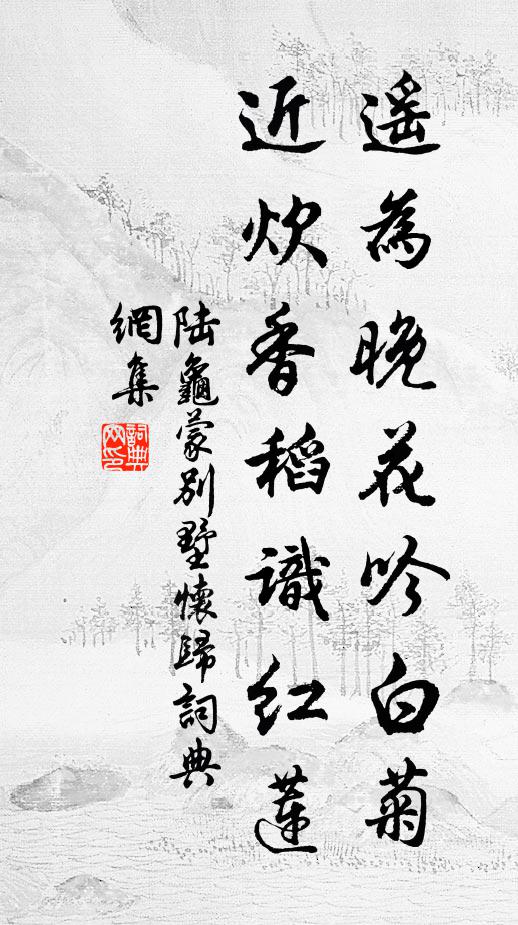 遥為晚花吟白菊
近炊香稻識红蓮
陆龜蒙別墅懷歸詞典
網集
詞典
网印